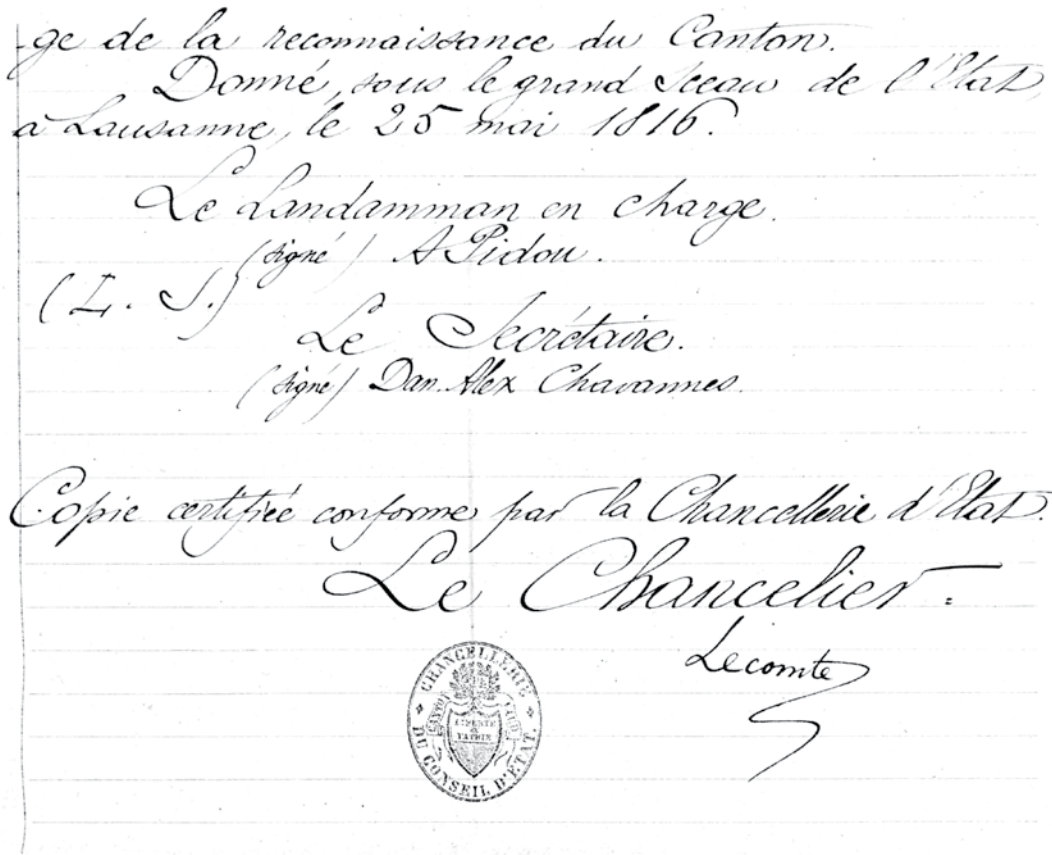 -ge de la reconnaissance du Canton.
Donné, sous le grand Sceau de l'Etat,
à Lausanne, le 25 mai 1816.
Le Landamman en charge.
(signé) A Pidou.
(L. S.)
Le Secrétaire.
(signé) Dan. Alex Chavannes.
Copie certifiée conforme par la Chancellerie d'Etat.
Le Chancelier.
Lecomte
CHANCELLERIE
CANTON VAUD
LIBERTÉ
PATRIE
DU CONSEIL D'ETAT.